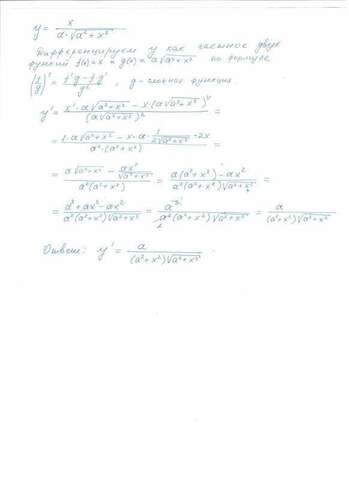 y = x / (a·√(a² + x²))
Дифференцируем y как частное двух
функций f(x) = x и g(x) = a√(a² + x²) по формуле
(f/g)' = (f'g − fg')/g² , g - сложная функция.
y' = (x'·a√(a² + x²) − x·(a√(a² + x²))')/(a√(a² + x²))² =
= (1·a√(a² + x²) − x·a·1/(2√(a² + x²))·2x)/(a²·(a² + x²)) =
= (a√(a² + x²) − ax²/√(a² + x²))/(a²(a² + x²)) = (a(a² + x²) − ax²)/(a²(a² + x²)√(a² + x²)) =
= (a³ + ax² − ax²)/(a²(a² + x²)√(a² + x²)) = a³/(a²(a² + x²)√(a² + x²)) = a/((a² + x²)√(a² + x²))
Ответ: y' = a/((a² + x²)√(a² + x²))